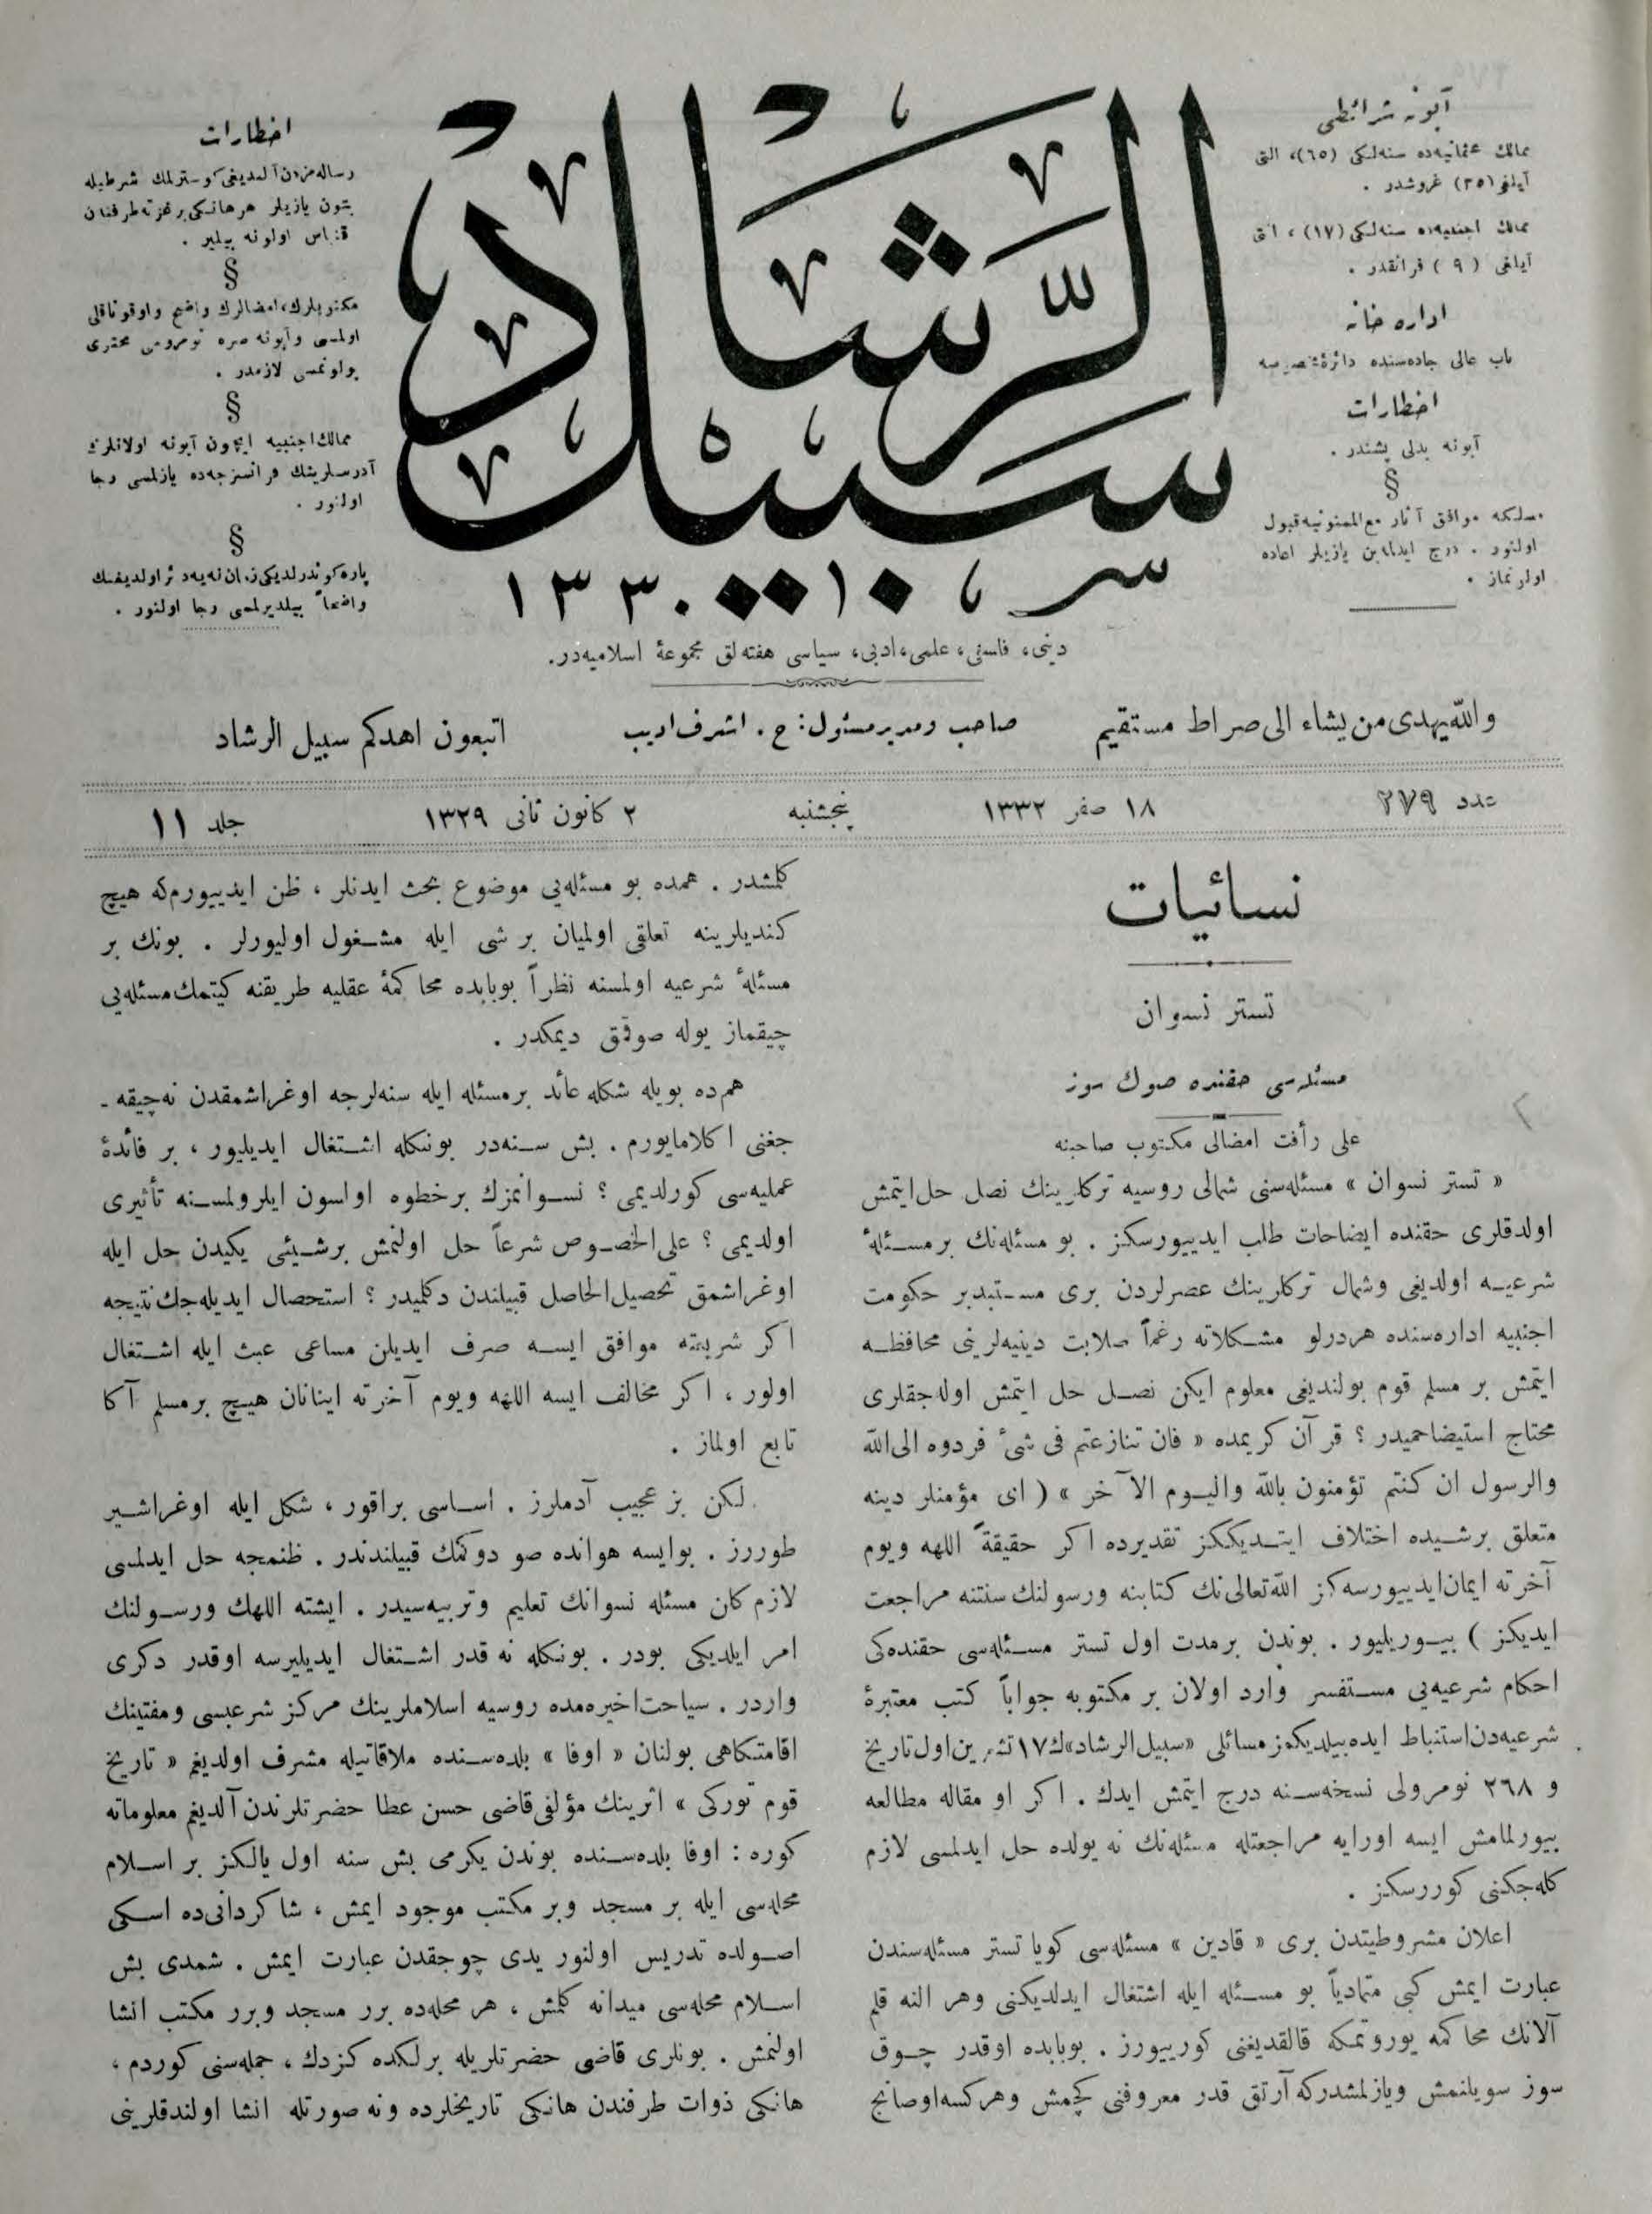 آبونه شرائطی
ممالك عثمانیه‌ده سنه‌لكی (٦٥)، التی
آیلغی (٣٥) غروشدر .
ممالك اجنبیه‌ده سنه‌لكی (١٧) ، التی
آیلغی ( ٩ ) فرانقدر .
اداره خانه
باب عالی جاده‌سنده دائرۀ مخصوصه
اخطارات
آبونه بدلی پشندر .
§
مسلكه موافق آثار مع الممنونیه قبول
اولنور . درج ایدلمه‌ین یازیلر اعاده
اولونماز .
سبیل الرشاد
١٣٣٠
اخطارات
رساله‌مزدن آلندیغی كوسترلمك شرطیله
بتون یازیلر هر هانكی بر غزته طرفندن
اقتباس اولونه بیلیر .
§
مكتوبلرك، امضالرك واضح واوقوناقلی
اولمسی وآبونه صره نومروسی محتوی
بولونمسی لازمدر .
§
ممالك اجنبیه ایچون آبونه اولانلرك
آدرسلرینك فرانسزجه‌ده یازلمسی رجا
اولنور .
§
پاره كوندرلدیكی زمان نه‌یه‌دائر اولدیغنك
واضحاً بیلدیرلمسی رجا اولنور .
دینی، فلسفی، علمی، ادبی، سیاسی هفته‌لق مجموعۀ اسلامیه‌در.
والله یهدی من یشاء الی صراط مستقیم
صاحب ومدیر مسئول: ح . اشرف ادیب
اتبعون اهدكم سبیل الرشاد
عدد ٢٧٩
١٨ صفر ١٣٣٢
پنجشنبه
٢ كانون ثانی ١٣٢٩
جلد ١١
نسائیات
تستر نسوان
مسئله‌سی حقنده صوك سوز
علی رأفت امضالی مكتوب صاحبنه
« تستر نسوان » مسئله‌سنی شمالی روسیه تركلرینك نصل حل ایتمش
اولدقلری حقنده ایضاحات طلب ایدییورسكز . بو مسئله‌نك بر مسئلۀ
شرعیه اولدیغی وشمال تركلرینك عصرلردن بری مستبد بر حكومت
اجنبیه اداره‌سنده هر درلو مشكلاته رغماً صلابت دینیه‌لرینی محافظه
ایتمش بر مسلم قوم بولندیغی معلوم ایكن نصل حل ایتمش اوله‌جقلری
محتاج استیضاحمیدر ؟ قرآن كریمده « فان تنازعتم فی شیٔ فردوه الی الله
والرسول ان كنتم تؤمنون بالله والیوم الآخر » ( ای مؤمنلر دینه
متعلق برشیده اختلاف ایتدیككز تقدیرده اكر حقیقةً اللهه ویوم
آخرته ایمان ایدییورسه‌كز الله تعالی نك كتابنه ورسولنك سنتنه مراجعت
ایدیكز ) بیوریلیور . بوندن برمدت اول تستر مسئله‌سی حقنده‌كی
احكام شرعیه‌یی مستفسر وارد اولان بر مكتوبه جواباً كتب معتبرۀ
شرعیه‌دن استنباط ایده بیلدیكمز مسائلی «سبیل الرشاد»ك ١٧ تشرین اول تاریخ
و ٢٦٨ نومرولی نسخه‌سنه درج ایتمش ایدك . اكر او مقاله مطالعه
بیورلمامش ایسه اورایه مراجعتله مسئله‌نك نه یولده حل ایدلمسی لازم
كله‌جكنی كوررسكز .
اعلان مشروطیتدن بری « قادین » مسئله‌سی كویا تستر مسئله‌سندن
عبارت ایمش كبی متمادیاً بو مسئله ایله اشتغال ایدلدیكنی وهر النه قلم
آلانك محاكمه یوروتمكه قالقدیغنی كورییورز . بوبابده اوقدر چوق
سوز سویلنمش ویازلمشدركه آرتق قدر معروفنی كچمش وهركسه اوصانج
كلمشدر . همده بو مسئله‌یی موضوع بحث ایدنلر ، ظن ایدییورم‌كه هیچ
كندیلرینه تعلقی اولمیان بر شی ایله مشغول اولیورلر . بونك بر
مسئلۀ شرعیه اولمسنه نظراً بوبابده محاكمۀ عقلیه طریقنه كیتمك مسئله‌یی
چیقماز یوله صوقمق دیمكدر .
هم‌ده بویله شكله عائد بر مسئله ایله سنه‌لرجه اوغراشمقدن نه‌چیقه ـ
جغنی اكلامایورم . بش سنه‌در بونكله اشتغال ایدیلیور ، بر فائدۀ
عملیه‌سی كورلدیمی ؟ نسوانمزك برخطوه اولسون ایلرولمسنه تأثیری
اولدیمی ؟ علی الخصوص شرعاً حل اولنمش برشیئی یكیدن حل ایله
اوغراشمق تحصیل الحاصل قبیلندن دكلمیدر ؟ استحصال ایدیله‌جك نتیجه
اكر شریعته موافق ایسه صرف ایدیلن مساعی عبث ایله اشتغال
اولور ، اكر مخالف ایسه اللهه ویوم آخرته اینانان هیچ برمسلم آكا
تابع اولماز .
لكن بز عجیب آدملرز . اساسی براقور ، شكل ایله اوغراشیر
طوررز . بوایسه هوانده صو دوكمك قبیلندندر . ظنمجه حل ایدلمسی
لازم كلن مسئله نسوانك تعلیم وتربیه‌سیدر . ایشته اللهك ورسولنك
امر ایلدیكی بودر . بونكله نه قدر اشتغال ایدیلیرسه اوقدر دكری
واردر . سیاحت اخیره‌مده روسیه اسلاملرینك مركز شرعیسی ومفتینك
اقامتكاهی بولنان « اوفا » بلده‌سنده ملاقاتیله مشرف اولدیغم « تاریخ
قوم توركی » اثرینك مؤلفی قاضی حسن عطا حضرتلرندن آلدیغم معلوماته
كوره : اوفا بلده‌سنده بوندن یكرمی بش سنه اول یالكز بر اسلام
محله‌سی ایله بر مسجد وبر مكتب موجود ایمش ، شاكردانی‌ده اسكی
اصولده تدریس اولنور یدی چوجقدن عبارت ایمش . شمدی بش
اسلام محله‌سی میدانه كلمش ، هر محله‌ده برر مسجد وبرر مكتب انشا
اولنمش . بونلری قاضی حضرتلریله برلكده كزدك ، جمله‌سنی كوردم ،
هانكی ذوات طرفندن هانكی تاریخلرده ونه صورتله انشا اولندقلرینی